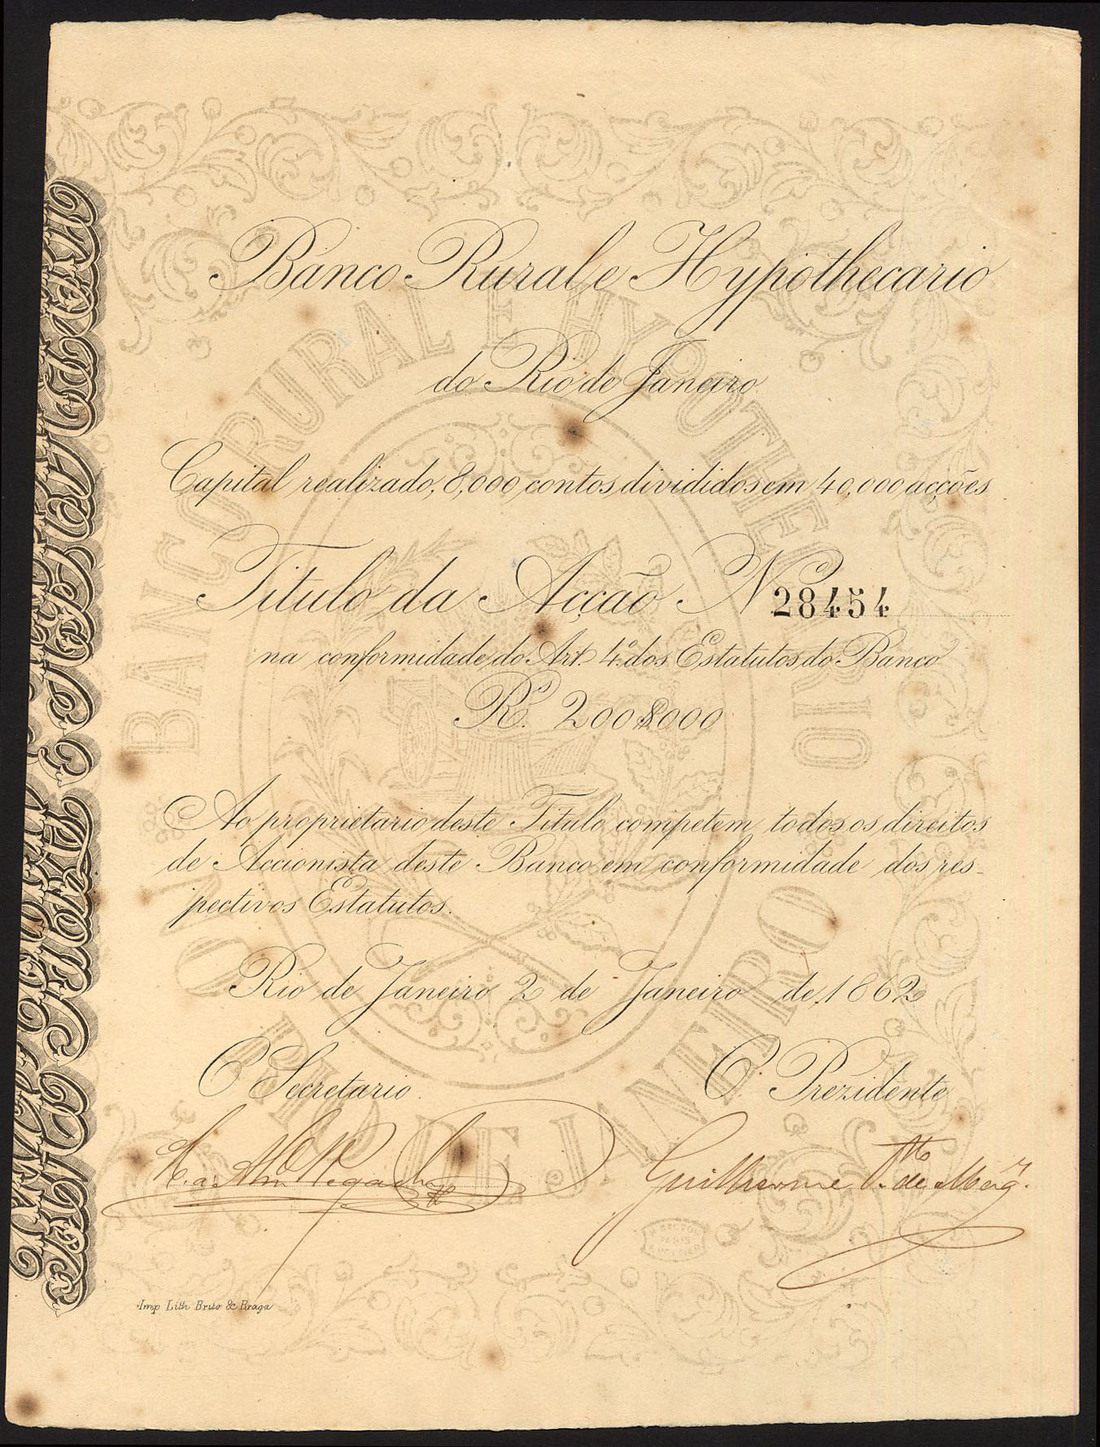 Banco Rural e Hypothecario
do Rio de Janeiro
Capital realizado, 8,000 contos divididos em 40,000 acções
Titulo da Acção N 28454
na conformidade do Art. 4º dos Estatutos do Banco
Rs. 200$000
Ao proprietario deste Titulo competem todos os direitos
de Accionista deste Banco em conformidade dos res-
pectivos Estatutos.
Rio de Janeiro 2 de Janeiro de 1862
O Secretario.
O Prezidente
Guilherme
Imp Lith Brito & Braga
BANCO RURAL E HYPOTHECARIO
DO RIO DE JANEIRO